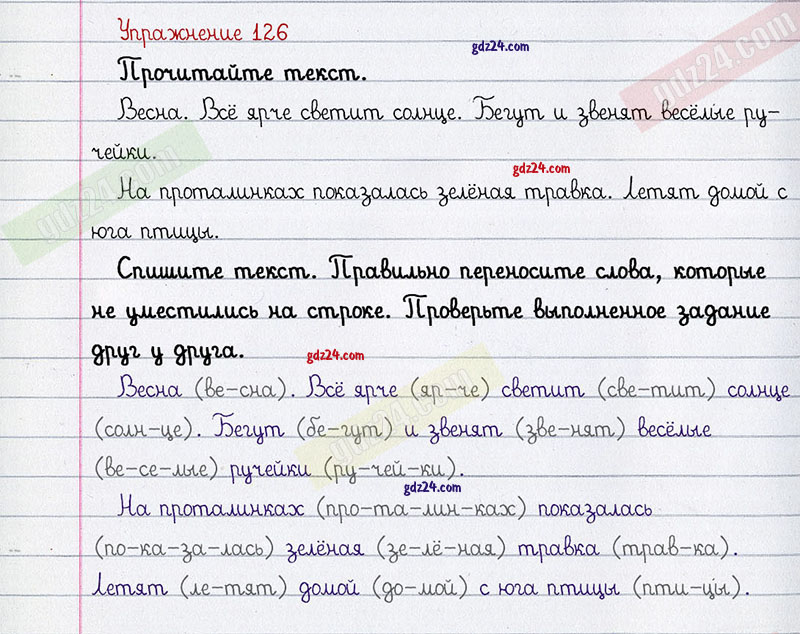 Упражнение 126
gdz24.com
gdz24.com
Прочитайте текст.
Весна. Всё ярче светит солнце. Бегут и звенят весёлые ру-
чейки.
gdz24.com
gdz24.com
На проталинках показалась зелёная травка. Летят домой с
юга птицы.
Спишите текст. Правильно переносите слова, которые
не уместились на строке. Проверьте выполненное задание
друг у друга.
gdz24.com
Весна (ве-сна). Всё ярче (яр-че) светит (све-тит) солнце
(солн-це). Бегут (бе-гут) и звенят (зве-нят) весёлые
gdz24.com
(ве-се-лые) ручейки (ру-чей-ки).
gdz24.com
На проталинках (про-та-лин-ках) показалась
(по-ка-за-лась) зелёная (зе-лё-ная) травка (трав-ка).
Летят (ле-тят) домой (до-мой) с юга птицы (пти-цы).